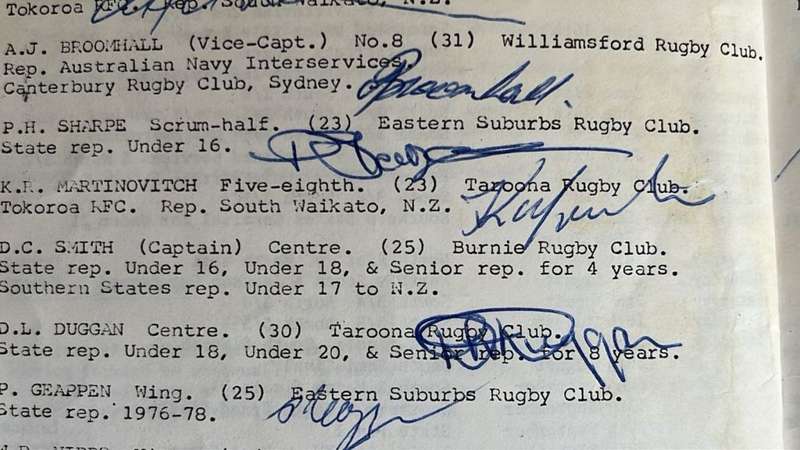 Tokoroa RFC. Rep. South Waikato, N.Z.
A.J. BROOMHALL (Vice-Capt.) No.8 (31) Williamsford Rugby Club.
Rep. Australian Navy Interservices.
Canterbury Rugby Club, Sydney.
P.H. SHARPE Scrum-half. (23) Eastern Suburbs Rugby Club.
State rep. Under 16.
K.R. MARTINOVITCH Five-eighth. (23) Taroona Rugby Club.
Tokoroa RFC. Rep. South Waikato, N.Z.
D.C. SMITH (Captain) Centre. (25) Burnie Rugby Club.
State rep. Under 16, Under 18, & Senior rep. for 4 years.
Southern States rep. Under 17 to N.Z.
D.L. DUGGAN Centre. (30) Taroona Rugby Club.
State rep. Under 18, Under 20, & Senior rep. for 8 years.
P. GEAPPEN Wing. (25) Eastern Suburbs Rugby Club.
State rep. 1976-78.